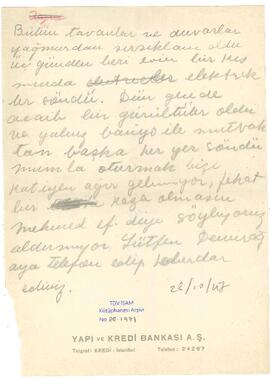 Bütün tavanlar ve duvarlar
yağmurdan sırsıklam oldu
üç günden beri evin bir kıs
mında elektrik
ler söndü. Dün gece de
acaib bir gürültüler oldu
ve yalnız banyo ile mutbak
tan başka her yer söndü
mumla oturmak bize
kat'iyen ağır gelmiyor, fakat
bir kaza olmasın
mehmed ef. diye söylüyoruz
aldırmıyor. Lütfen
aya telefon edip haberdar
ediniz.
22/10/47
TDV İSAM
Kütüphanesi Arşivi
No
YAPI ve KREDİ BANKASI A.Ş.
Telgraf: KREDİ - İstanbul Telefon: 24287